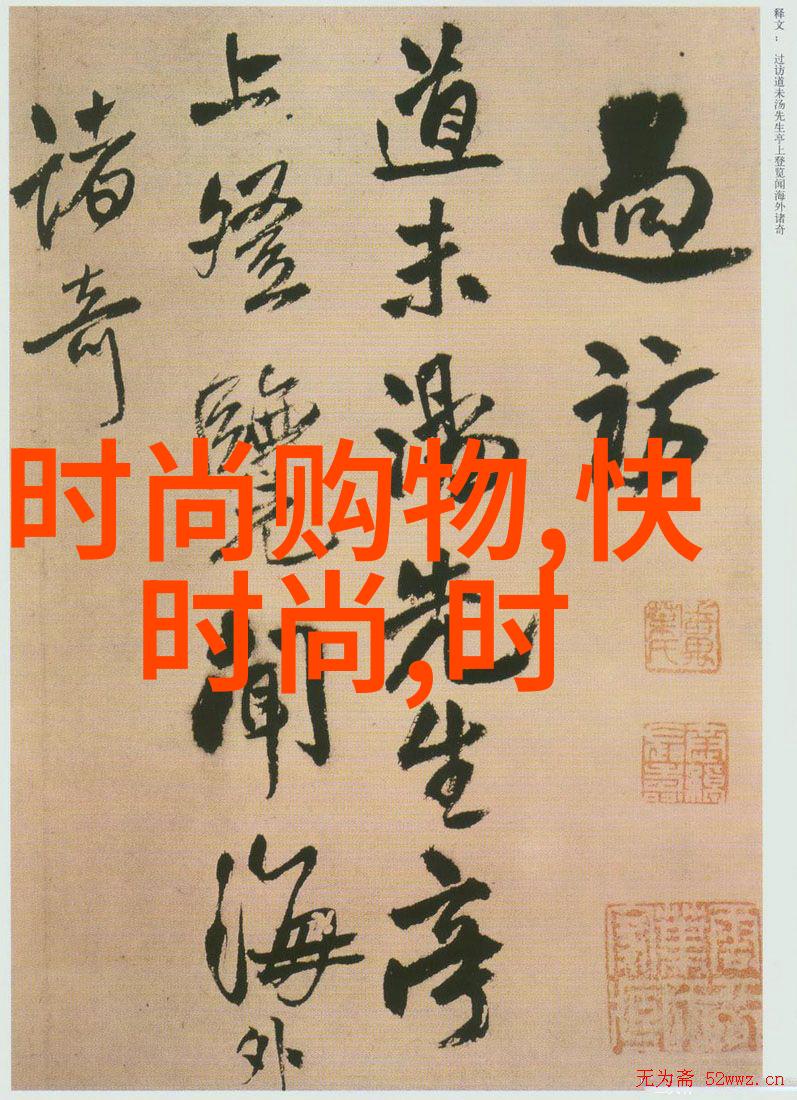 释文： 过访道未汤先生亭上登览闻海外诸奇
過訪
道未湯先生亭
上登覽聞海外
諸奇
时尚购物,快
时尚,时
无为斋 52wwz.cn